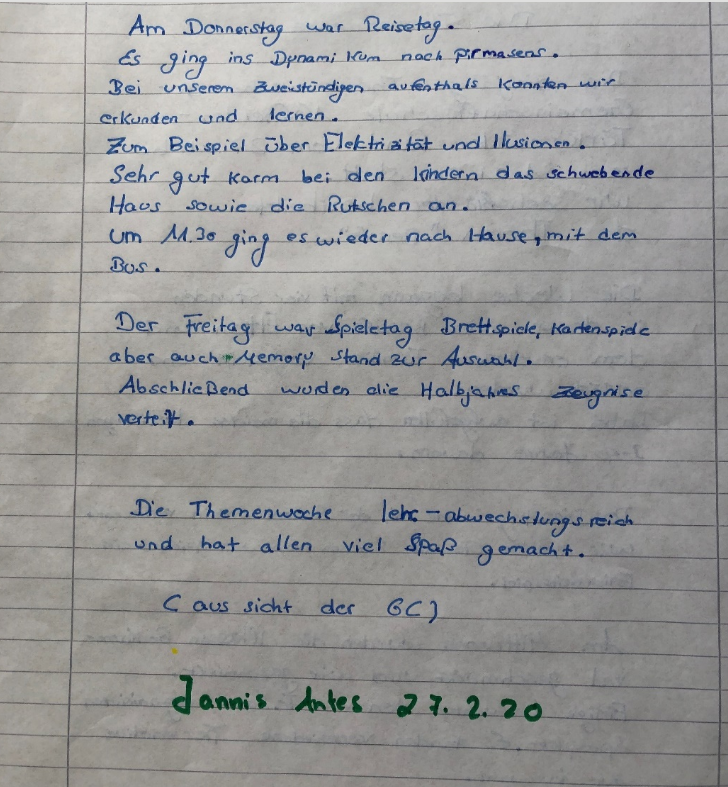 Am Donnerstag war Reisetag.
Es ging ins Dynamikum nach pirmasens.
Bei unserem zweistündigen aufenthals konnten wir
erkunden und lernen.
Zum Beispiel über Elektrizität und Ilusionen.
Sehr gut karm bei den kindern das schwebende
Haus sowie die Rutschen an.
um 11.30 ging es wieder nach Hause, mit dem
Bus.
Der Freitag war Spieletag Brettspiele, Kartenspiele
aber auch Memory stand zur Auswahl.
Abschließend wurden die Halbjahres Zeugnise
verteilt.
Die Themenwoche abwechslungsreich
und hat allen viel Spaß gemacht.
(aus sicht der 6C)
Jannis Antes 27.2.20